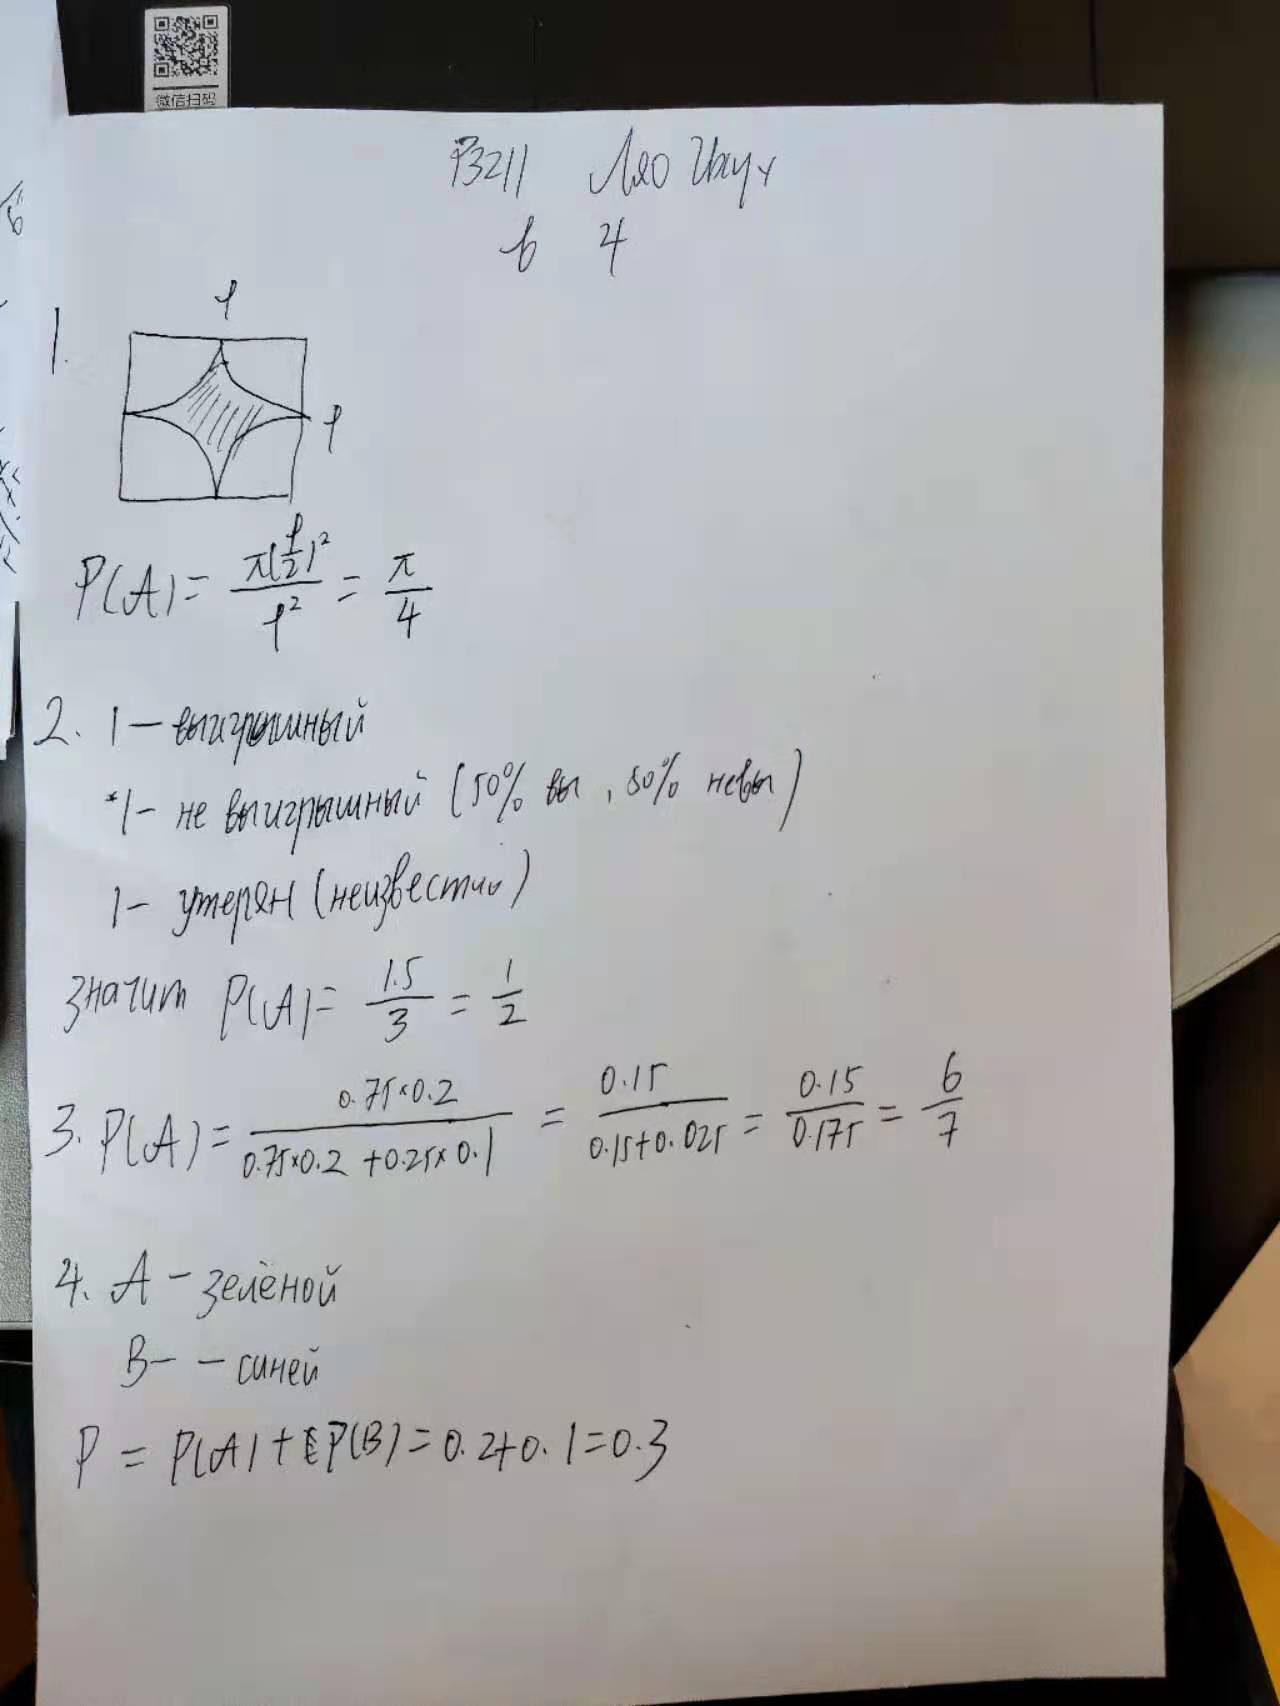 微信扫码
P3211 Ляо Ихуу
в 4
1.
l
l
P(A) = π(l/2)² / l² = π/4
2. 1 — выигрышный
*1 - не выигрышный (50% вы, 50% невы)
1 - утерян (неизвестно)
значит P(A) = 1.5/3 = 1/2
3. P(A) = 0.75×0.2 / 0.75×0.2 + 0.25×0.1 = 0.15 / 0.15+0.025 = 0.15/0.175 = 6/7
4. A - зелёной
B - - синей
P = P(A) + P(B) = 0.2+0.1=0.3